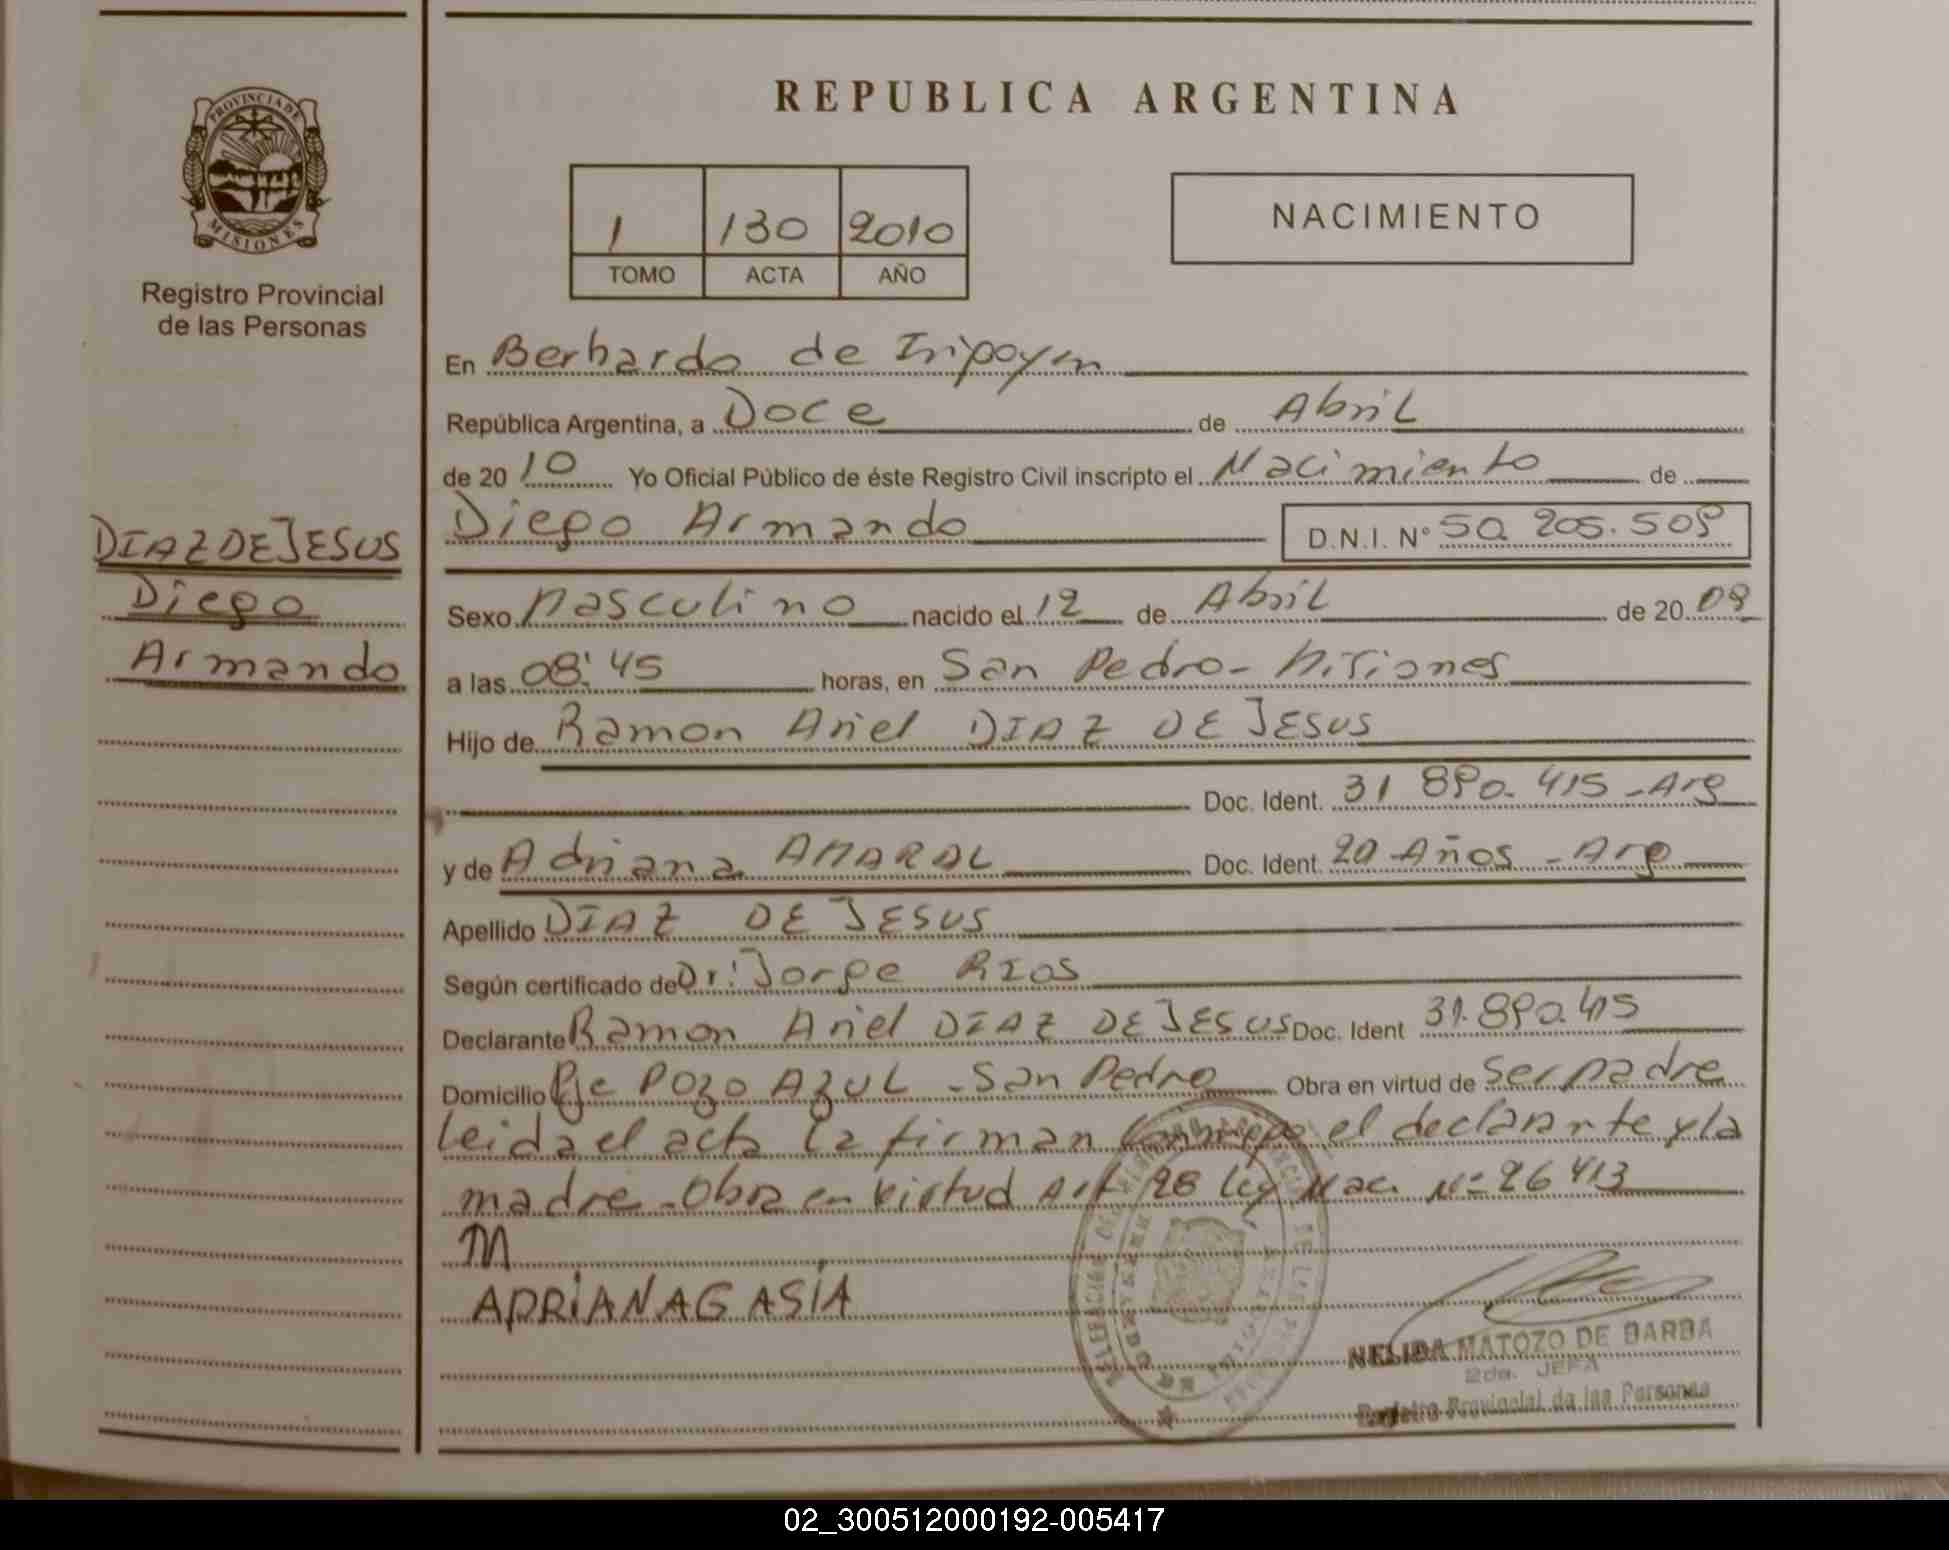 PROVINCIA DE
MISIONES
Registro Provincial
de las Personas
DIAZ DE JESUS
Diego
Armando
REPUBLICA ARGENTINA
1 130 2010
TOMO ACTA AÑO
NACIMIENTO
En Bernardo de Iripoyen
República Argentina, a Doce de Abril
de 2010 Yo Oficial Público de éste Registro Civil inscripto el Nacimiento de
Diego Armando D.N.I. Nº 50.205.509
Sexo Masculino nacido el 12 de Abril de 2009
a las 08:45 horas, en San Pedro - Misiones
Hijo de Ramon Ariel DIAZ DE JESUS
Doc. Ident. 31 890.415 - Arg
y de Adriana AMARAL Doc. Ident. 20 Años - Arg
Apellido DIAZ DE JESUS
Según certificado de Dr: Jorge RIOS
Declarante Ramon Ariel DIAZ DE JESUS Doc. Ident 31.890.415
Domicilio Pje POZO AZUL - San Pedro Obra en virtud de Ser padre
leida el acta la firman conmigo el declarante y la
madre - Obra en virtud Art 28 Ley Nac. Nº 26 413
ADRIANAGASIA
NELIDA MATOZO DE BARBA
2da. JEFA
Registro Provincial de las Personas
02_300512000192-005417